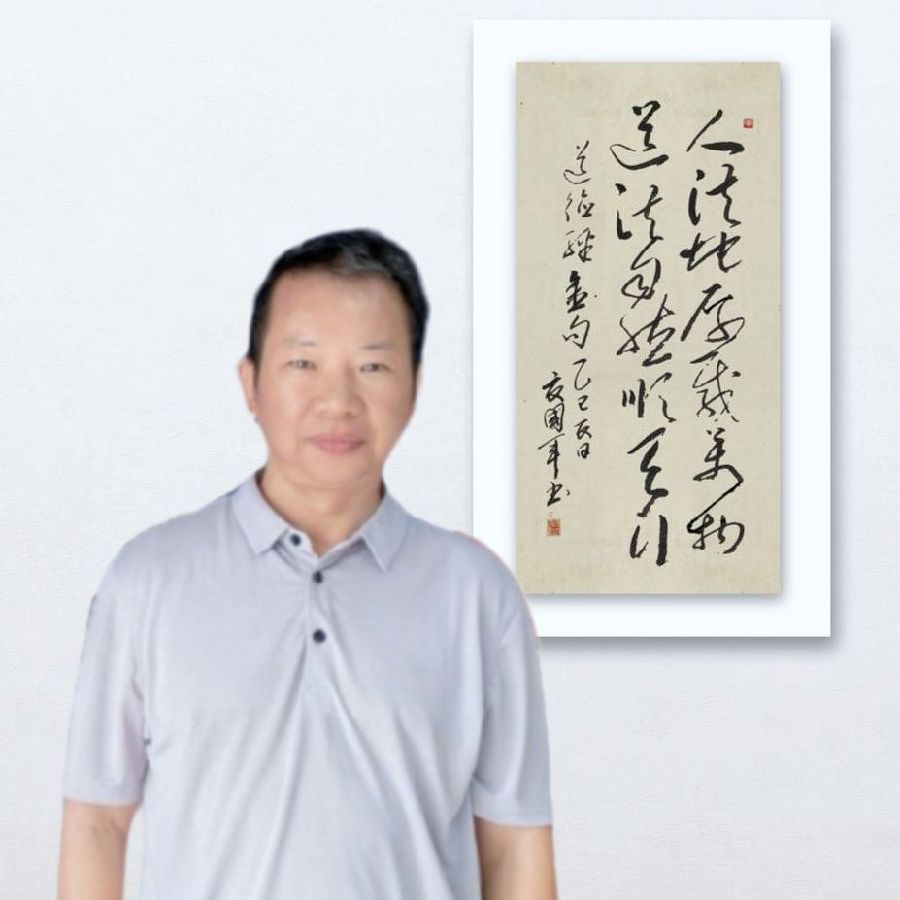 人法地厚載萬物
道法自然順天行
道德經金句乙巳
國軍书